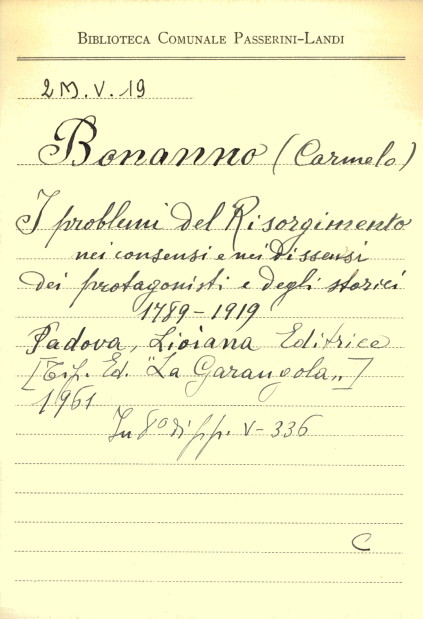 BIBLIOTECA COMUNALE PASSERINI-LANDI
2 M. V. 19
Bonanno (Carmelo)
I problemi del Risorgimento
nei consensi e nei dissensi
dei protagonisti e degli storici
1789-1919
Padova, Liviana Editrice
[Tip. Ed. "La Garangola"]
1961
In 8° di pp. V-336
C